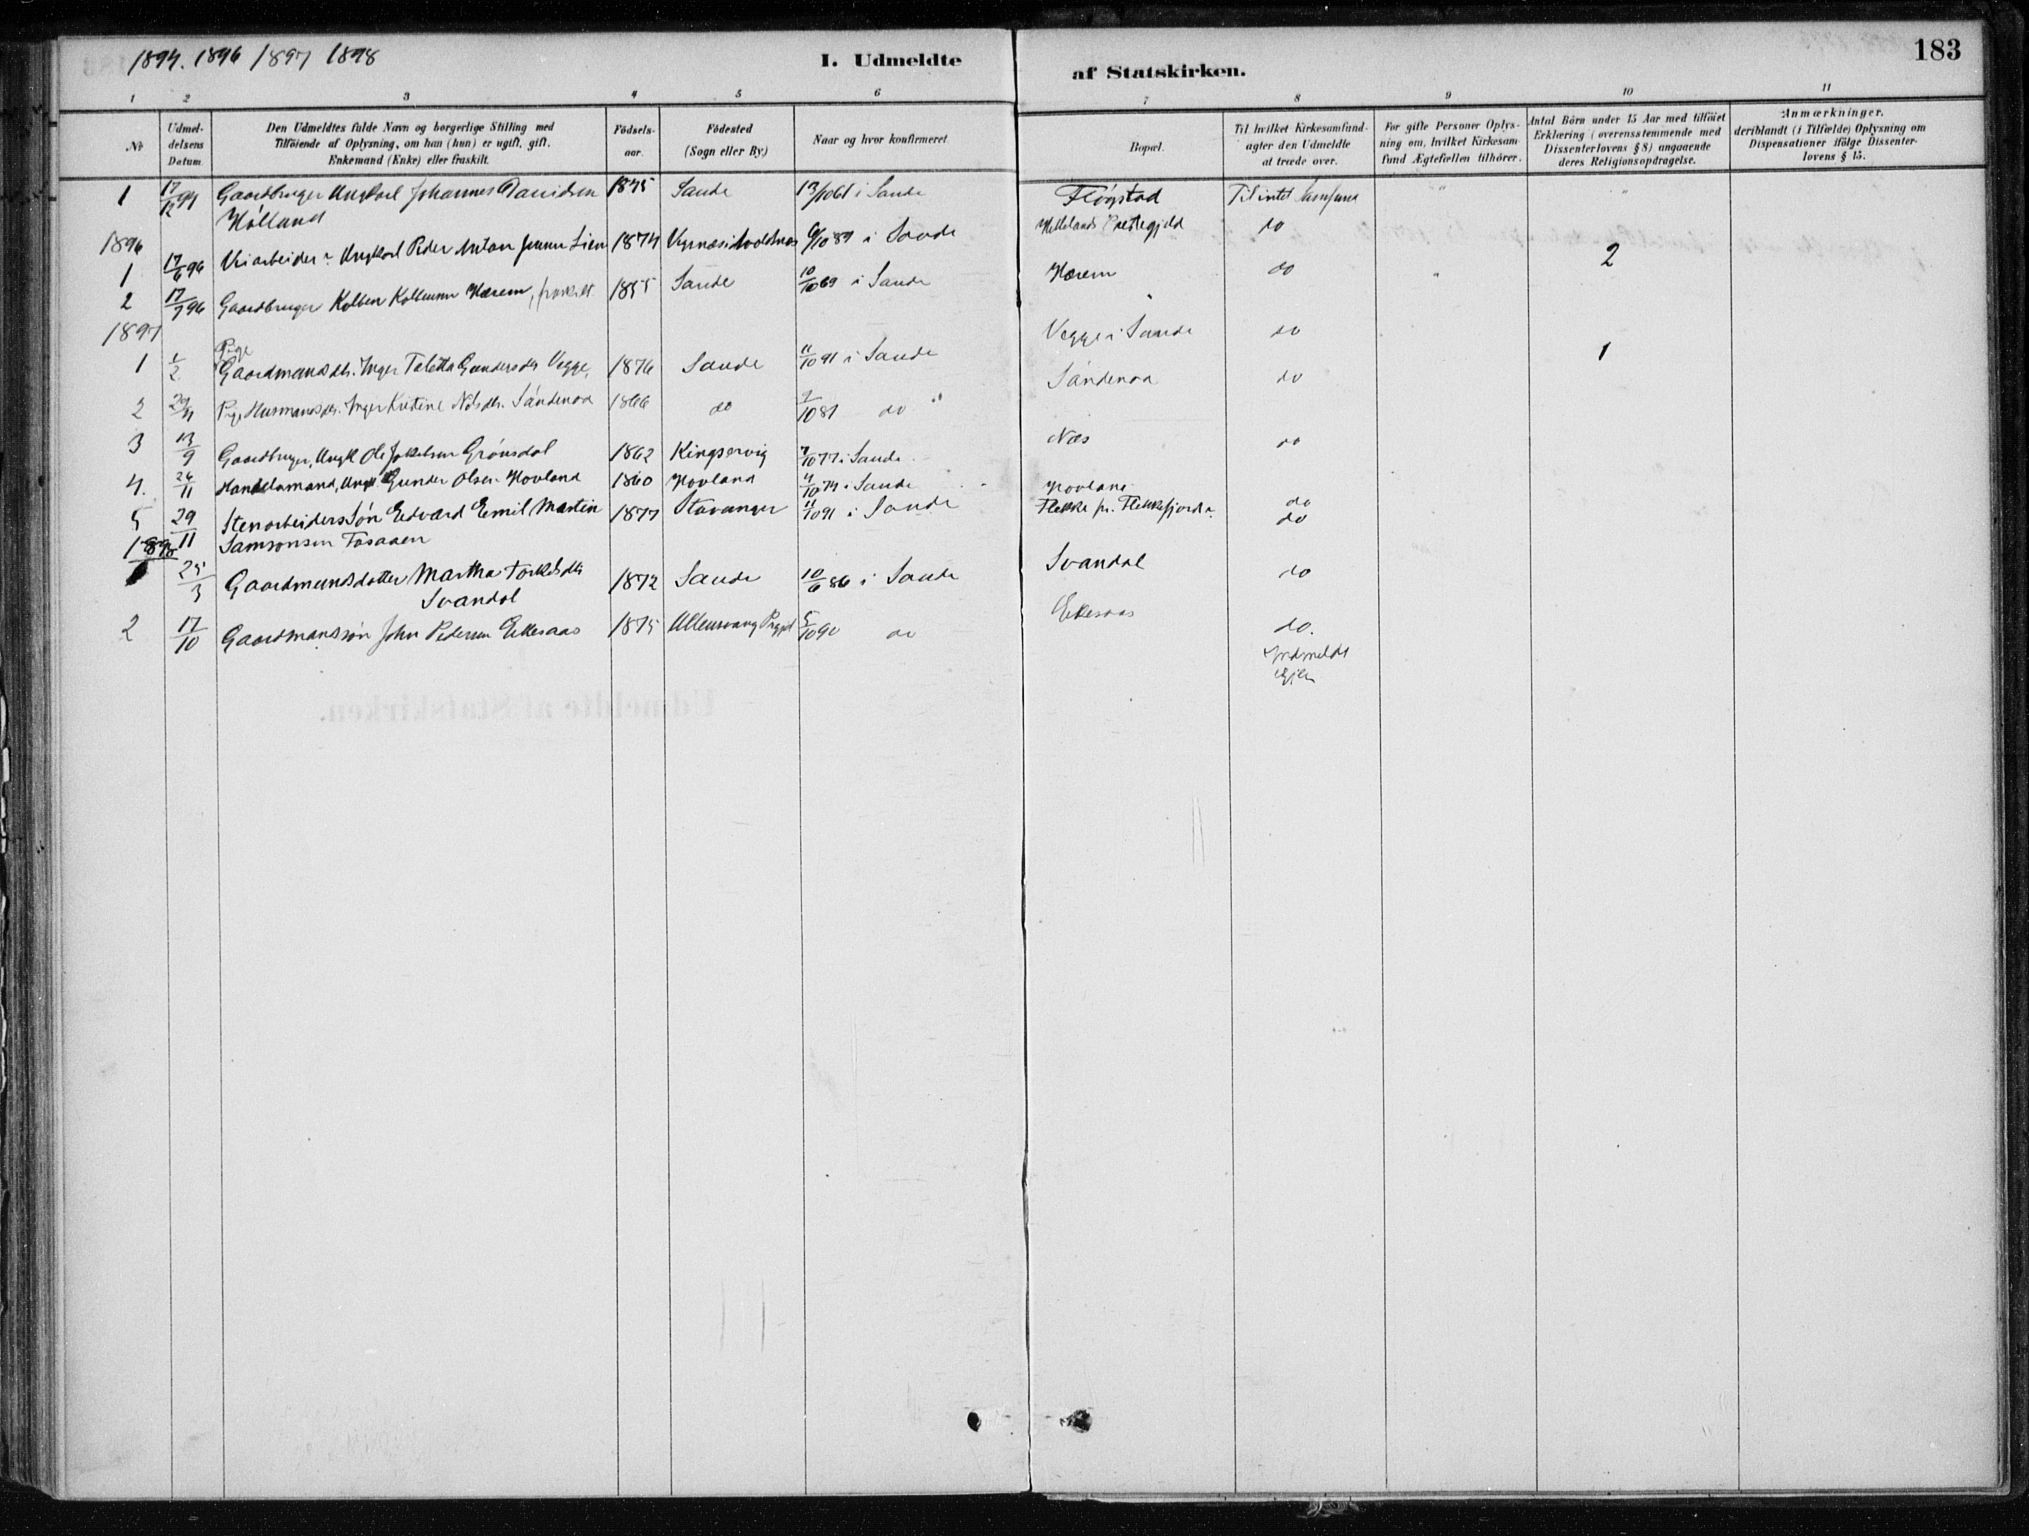 1894. 1896 1897 1898
I. Udmeldte af Statskirken.
183
1 2 3 4 5 6 7 8 9 10 11
No
Udmel-
delsens
Datum.
Den Udmeldtes fulde Navn og borgerlige Stilling med
Tilföiende af Oplysning, om han (hun) er ugift, gift,
Enkemand (Enke) eller fraskilt.
Födsels-
aar.
Födested
(Sogn eller By)
Naar og hvor konfirmeret
Bopæl.
Til hvilket Kirkesamfund
agter den Udmeldte
at træde over.
For gifte Personer Oplys-
ning om, hvilket Kirkesam-
fund Ægtefællen tilhörer.
Antal Börn under 15 Aar med tilföiet
Erklæring (overensstemmende med
Dissenterlovens § 8) angaaende
deres Religionsopdragelse.
Anmærkninger,
deriblandt (i Tilfælde) Oplysning om
Dispensationer ifölge Dissenter-
lovens § 15.
1 17/12 94 Gaardbruger Ungkarl Johannes Davidsen 1845 Saude 13/10 61 i Saude Fløgstad Til intet Samfund " "
Hølland
1896
1 17/6 96 Ungkarl Peder Anton Lien 1874 6/10 89 i Saude Hellelands Præstegjeld do
2 17/9 96 Gaardbruger Kolben Kolbensen Hærem, fraskilt 1855 Saude 10/10 69 i Saude Hærem do " 2
1897
Pige
1 1/2 Gaardmandsdtr. Inger Taletta Gundersdtr Vegge, 1876 Saude 11/10 91 i Saude Vegge i Saude do
2 29/4 Pige Husmandsdtr. Inger Kristine Nilsdtr. Sándenaa 1866 do 2/10 81 do Sándenaa do 1
3 13/9 Gaardbruger, Ungk Ole Grönsdal 1862 Kingservig 7/10 77 i Saude Næs do
4. 26/11 Handelsmand, Ungk Gunder Olsen Hovland 1860 Hovland 4/10 74 i Saude Hovland do
5 29/11 Stenarbeiders Søn Edvard Emil Martin 1877 Stavanger 11/10 91 i Saude Flekke pr. Flekkefjord do
Samsonsen Fosaaen
1898
1 25/3 Gaardmandsdatter Martha Torkelsdtr 1872 Saude 10/6 86 i Saude Svandal do
Svandal
2 17/10 Gaardmandssøn John Pedersen Eikesaas 1875 Ullensvang Prgjeld 5/10 90 do Eikesaas do.
Indmeldt
igjen